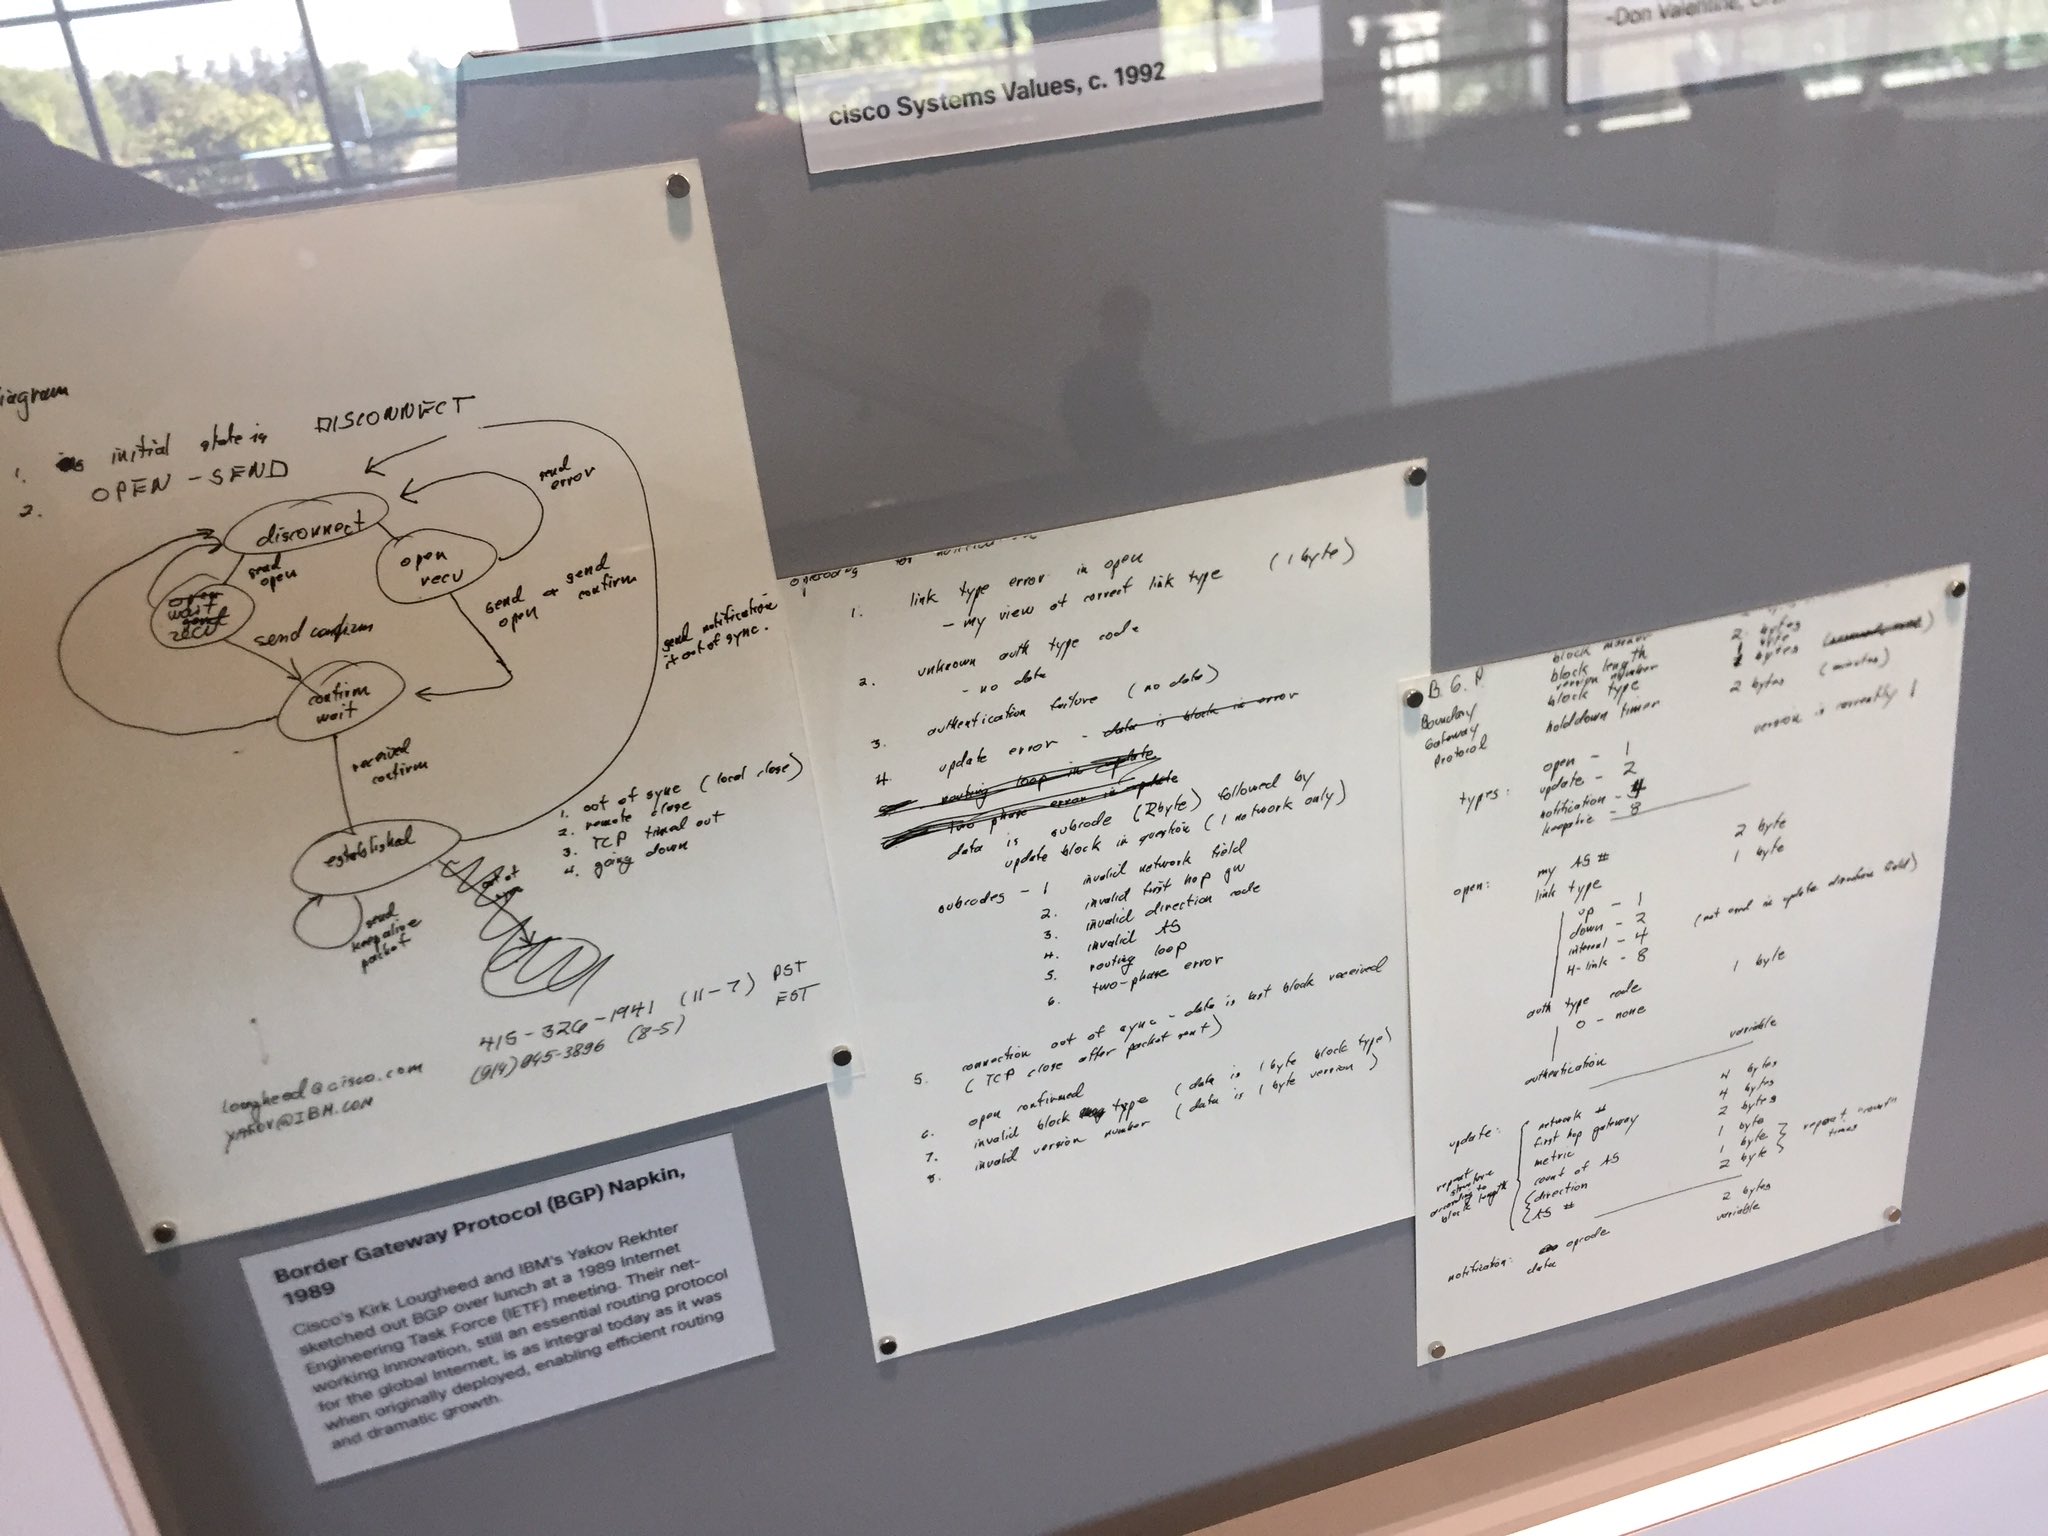 -Don Valentine,
cisco Systems Values, c. 1992
iagram
1. initial state is DISCONNECT
2. OPEN - SEND
disconnect
send error
open recv
send open
send open & send confirm
open wait
recv
send confirm
send notification
if out of sync.
confirm wait
received confirm
established
1. out of sync (local close)
2. remote close
3. TCP timed out
4. going down
send keepalive packet
415-326-1941 (11-7) PST
(914) 945-3896 (8-5) EST
lougheed@cisco.com
yakov@IBM.com
Border Gateway Protocol (BGP) Napkin,
1989
Cisco's Kirk Lougheed and IBM's Yakov Rekhter
sketched out BGP over lunch at a 1989 Internet
Engineering Task Force (IETF) meeting. Their net-
working innovation, still an essential routing protocol
for the global Internet, is as integral today as it was
when originally deployed, enabling efficient routing
and dramatic growth.
1. link type error in open (1 byte)
- my view of correct link type
2. unknown auth type code
- no data
3. authentication failure (no data)
4. update error - data is block in error
routing loop in update
two phase error in update
data is subcode (2 byte) followed by
update block in question (1 network only)
subcodes - 1 invalid network field
2. invalid first hop gw
3. invalid direction code
4. invalid AS
5. routing loop
6. two-phase error
5. connection out of sync - data is last block received
(TCP close after packet sent)
6. open confirmed
7. invalid block type (data is 1 byte block type)
8. invalid version number (data is 1 byte version)
B.G.P.
Boundary
Gateway
Protocol
block marker 2 bytes
block length 2 bytes
version number 1 byte
block type bytes
holddown timer 2 bytes (minutes)
version is currently 1
types: open - 1
update - 2
notification - 4
keepalive - 8
open: my AS # 2 byte
link type 1 byte
up - 1
down - 2 (not used in update direction field)
internal - 4
H-link - 8
auth type code 1 byte
0 - none
authentication variable
update: network # 4 bytes
first hop gateway 4 bytes
metric 2 bytes
count of AS 1 byte
direction 1 byte
AS # 2 byte
repeat "count" times
repeat structure according to block length
notification: opcode 2 bytes
data variable